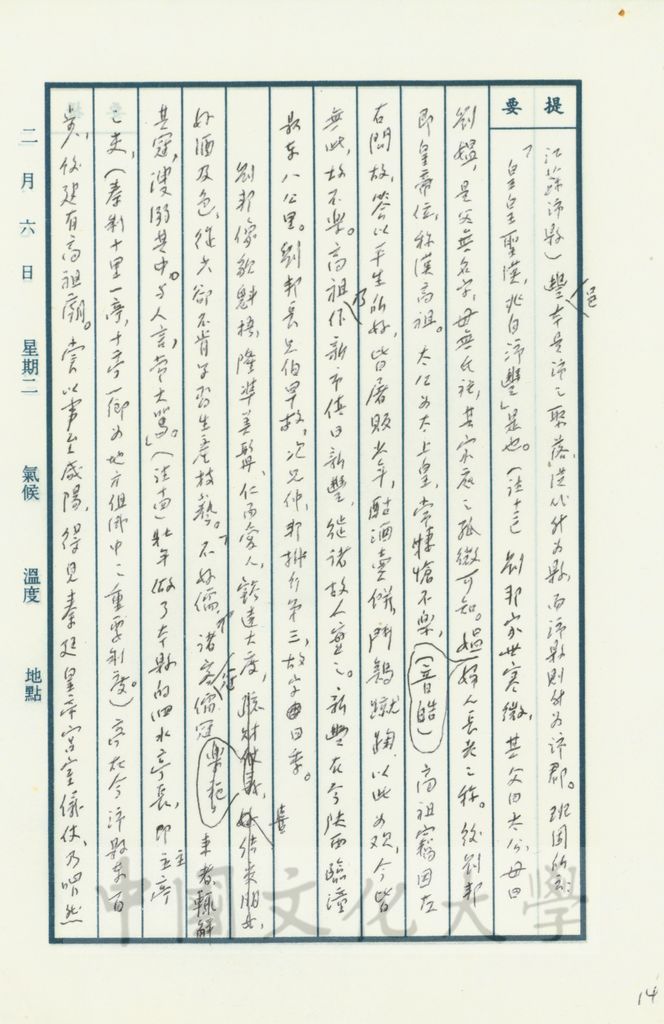 提要
江蘇沛縣）豐邑本是沛之聚落，漢代升為縣，而沛縣則升為沛郡。班固所謂
「皇皇聖漢，兆自沛豐」是也。（註十三）劉邦家世寒微，其父曰太公，母曰
劉媼，是父無名字，母無氏族，其家庭之孤微可知。媼，婦人長老之稱。後劉邦
即皇帝位，稱漢高祖。太公為太上皇，常悽愴不樂，（音皓）高祖竊因左
右問故，答以平生所好，皆屠販少年，酤酒賣餅，鬥鷄蹴踘，以此為歡，今皆
無此，故不樂。高祖乃作新市倣曰新豐，徙諸故人實之。新豐在今陝西臨潼
縣東八公里。劉邦長兄伯早故，次兄仲，邦排行第三，故字曰季。
劉邦儀貌魁梧，隆準美髯，仁而愛人，豁達大度，喜結交朋友，
好酒及色，從少卻不肯學習生產技藝。不好儒，諸客冠儒冠來者，輒解
其冠，溲溺其中。與人言，常大罵」。（註十四）壯年做了本縣的泗水亭長，即主亭
之吏，（秦制十里一亭，十亭一鄉，為地方組織中之重要制度。）亭在今沛縣東百
步，後建有高祖廟。嘗以事至咸陽，得見秦廷皇帝宮室儀仗，乃喟然
二月六日 星期二 氣候 溫度 地點
中國文化大學
14